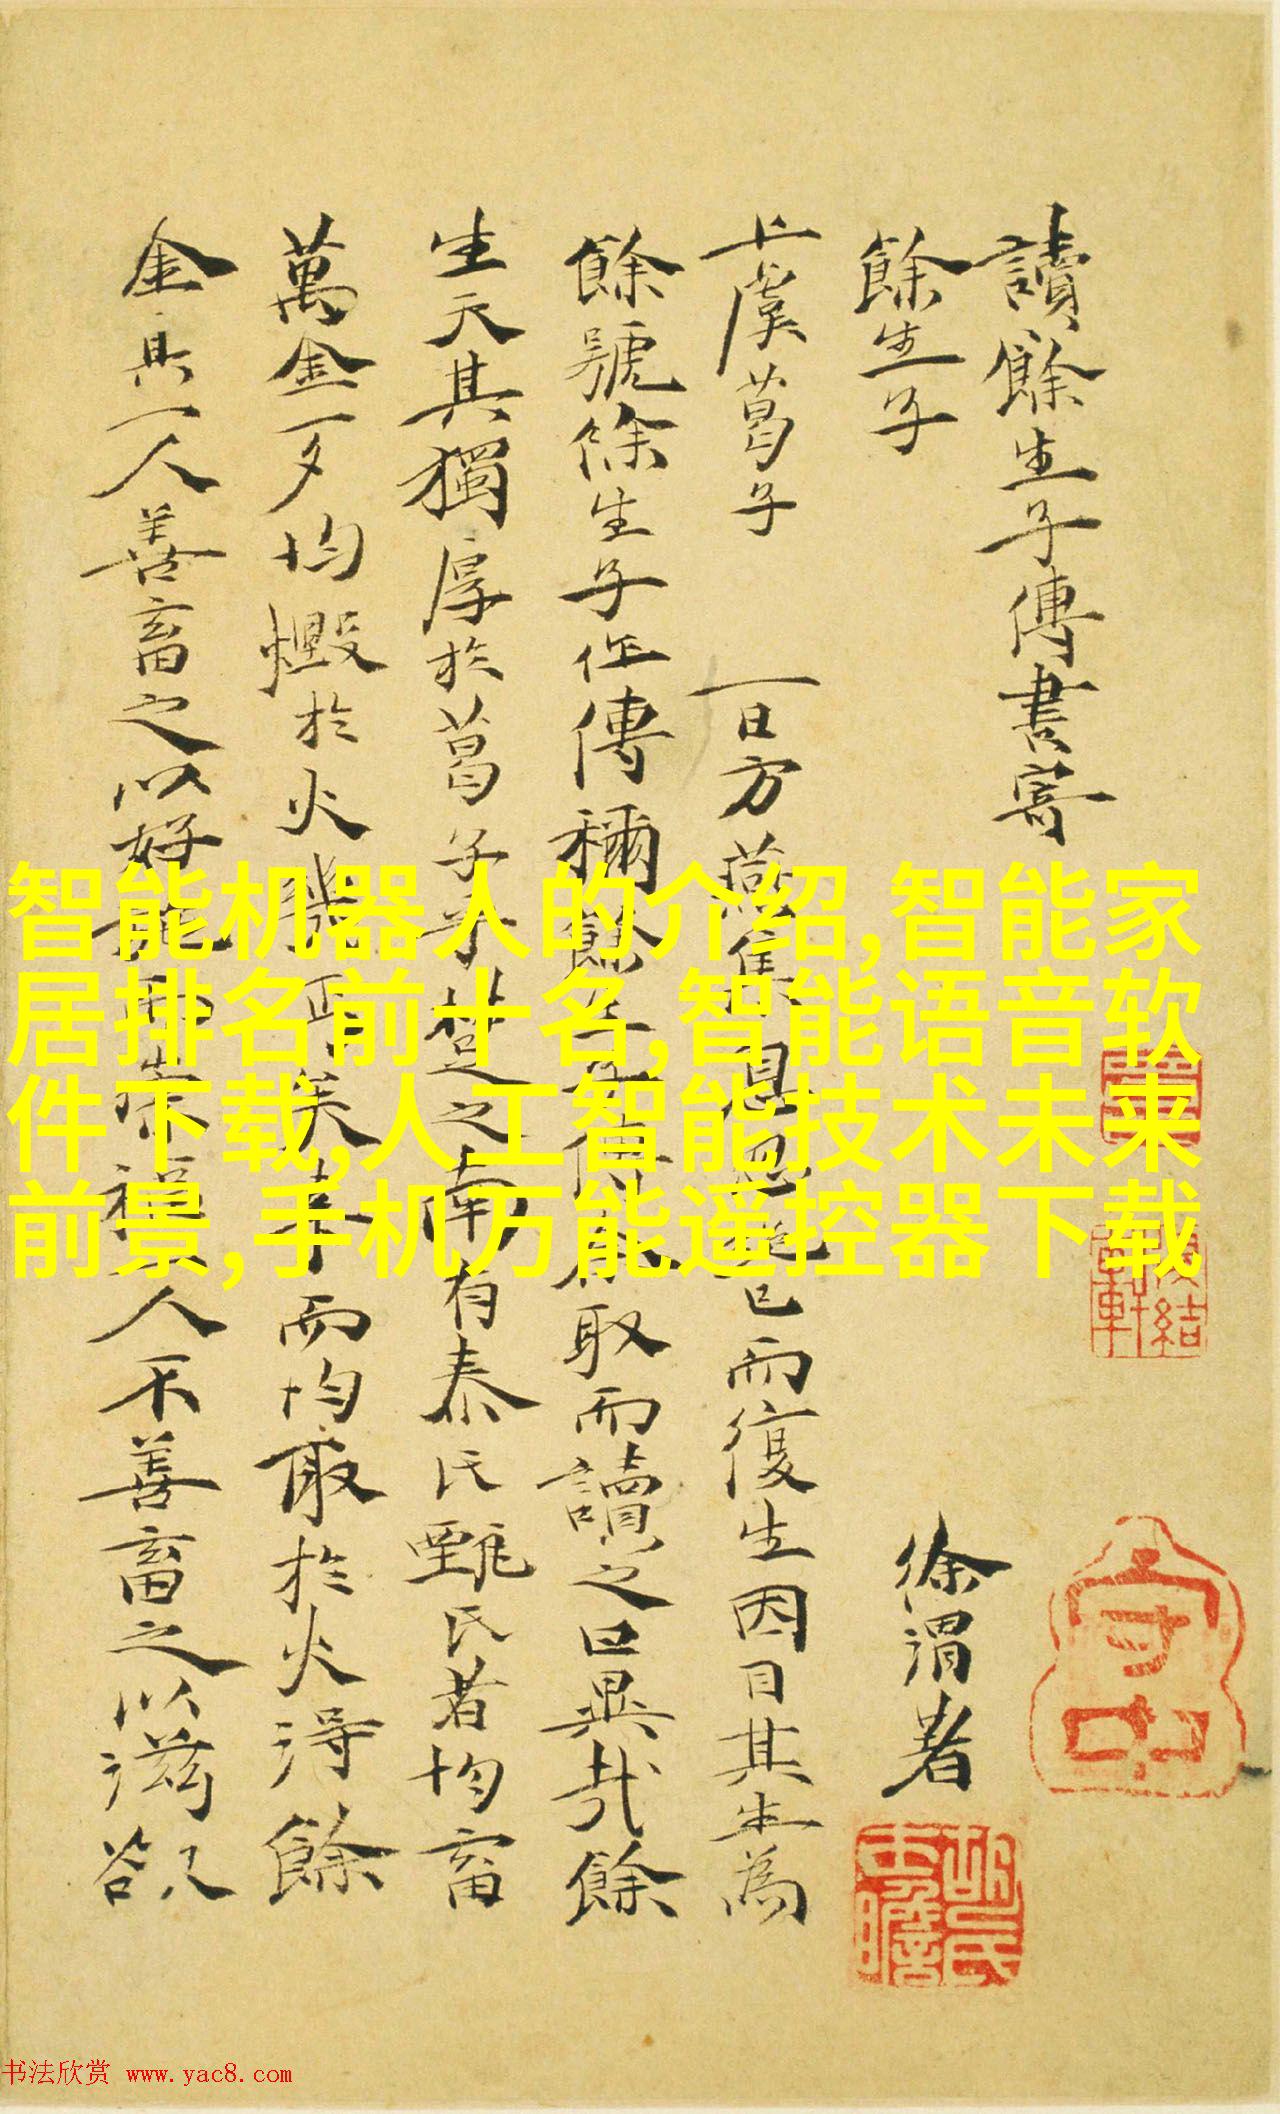 讀餘生子傳書寄
餘生子
徐渭著
上虞葛子
一日方燕集
已而復生因目其生為
餘號餘生子作傳稱餘生子傳
取而讀之曰異哉餘
生天其獨厚於葛子乎楚之南有泰氏甄氏者均畜
萬金一夕均燬於火
而均取於火得餘
金其一人善畜之以好
人不善畜之以滋欲
智能机器人的介绍,智能家
居排名前十名,智能语音软
件下载,人工智能技术未来
前景,手机万能遥控器下载
书法欣赏 www.yac8.com